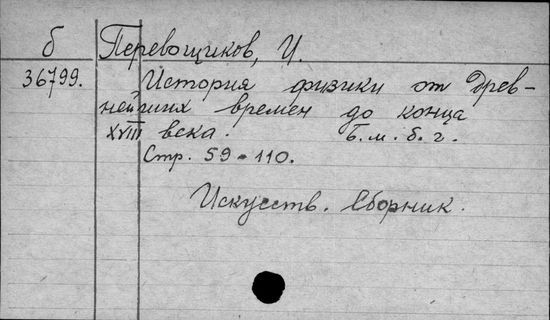 б Перевощиков, И.
36799. История физики от древ-
нейших времен до конца
XVIII века. Б. м. б. г.
Стр. 59-110.
Искусств. Сборник.